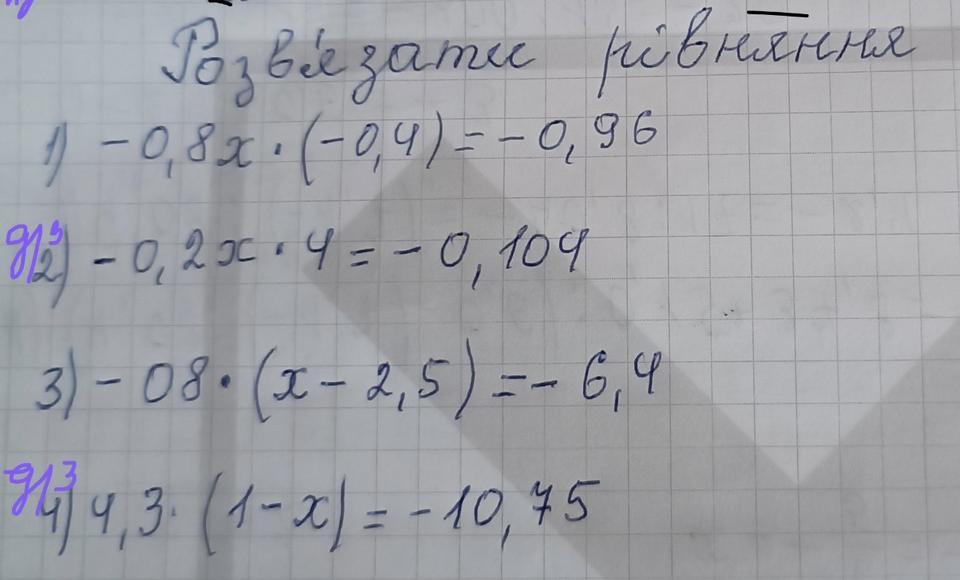 Розв'язати рівняння
1) -0,8x · (-0,4) = -0,96
д/з
2) -0,2x · 4 = -0,104
3) -08 · (x - 2,5) = - 6,4
д/з
4) 4,3 · (1-x) = -10,75